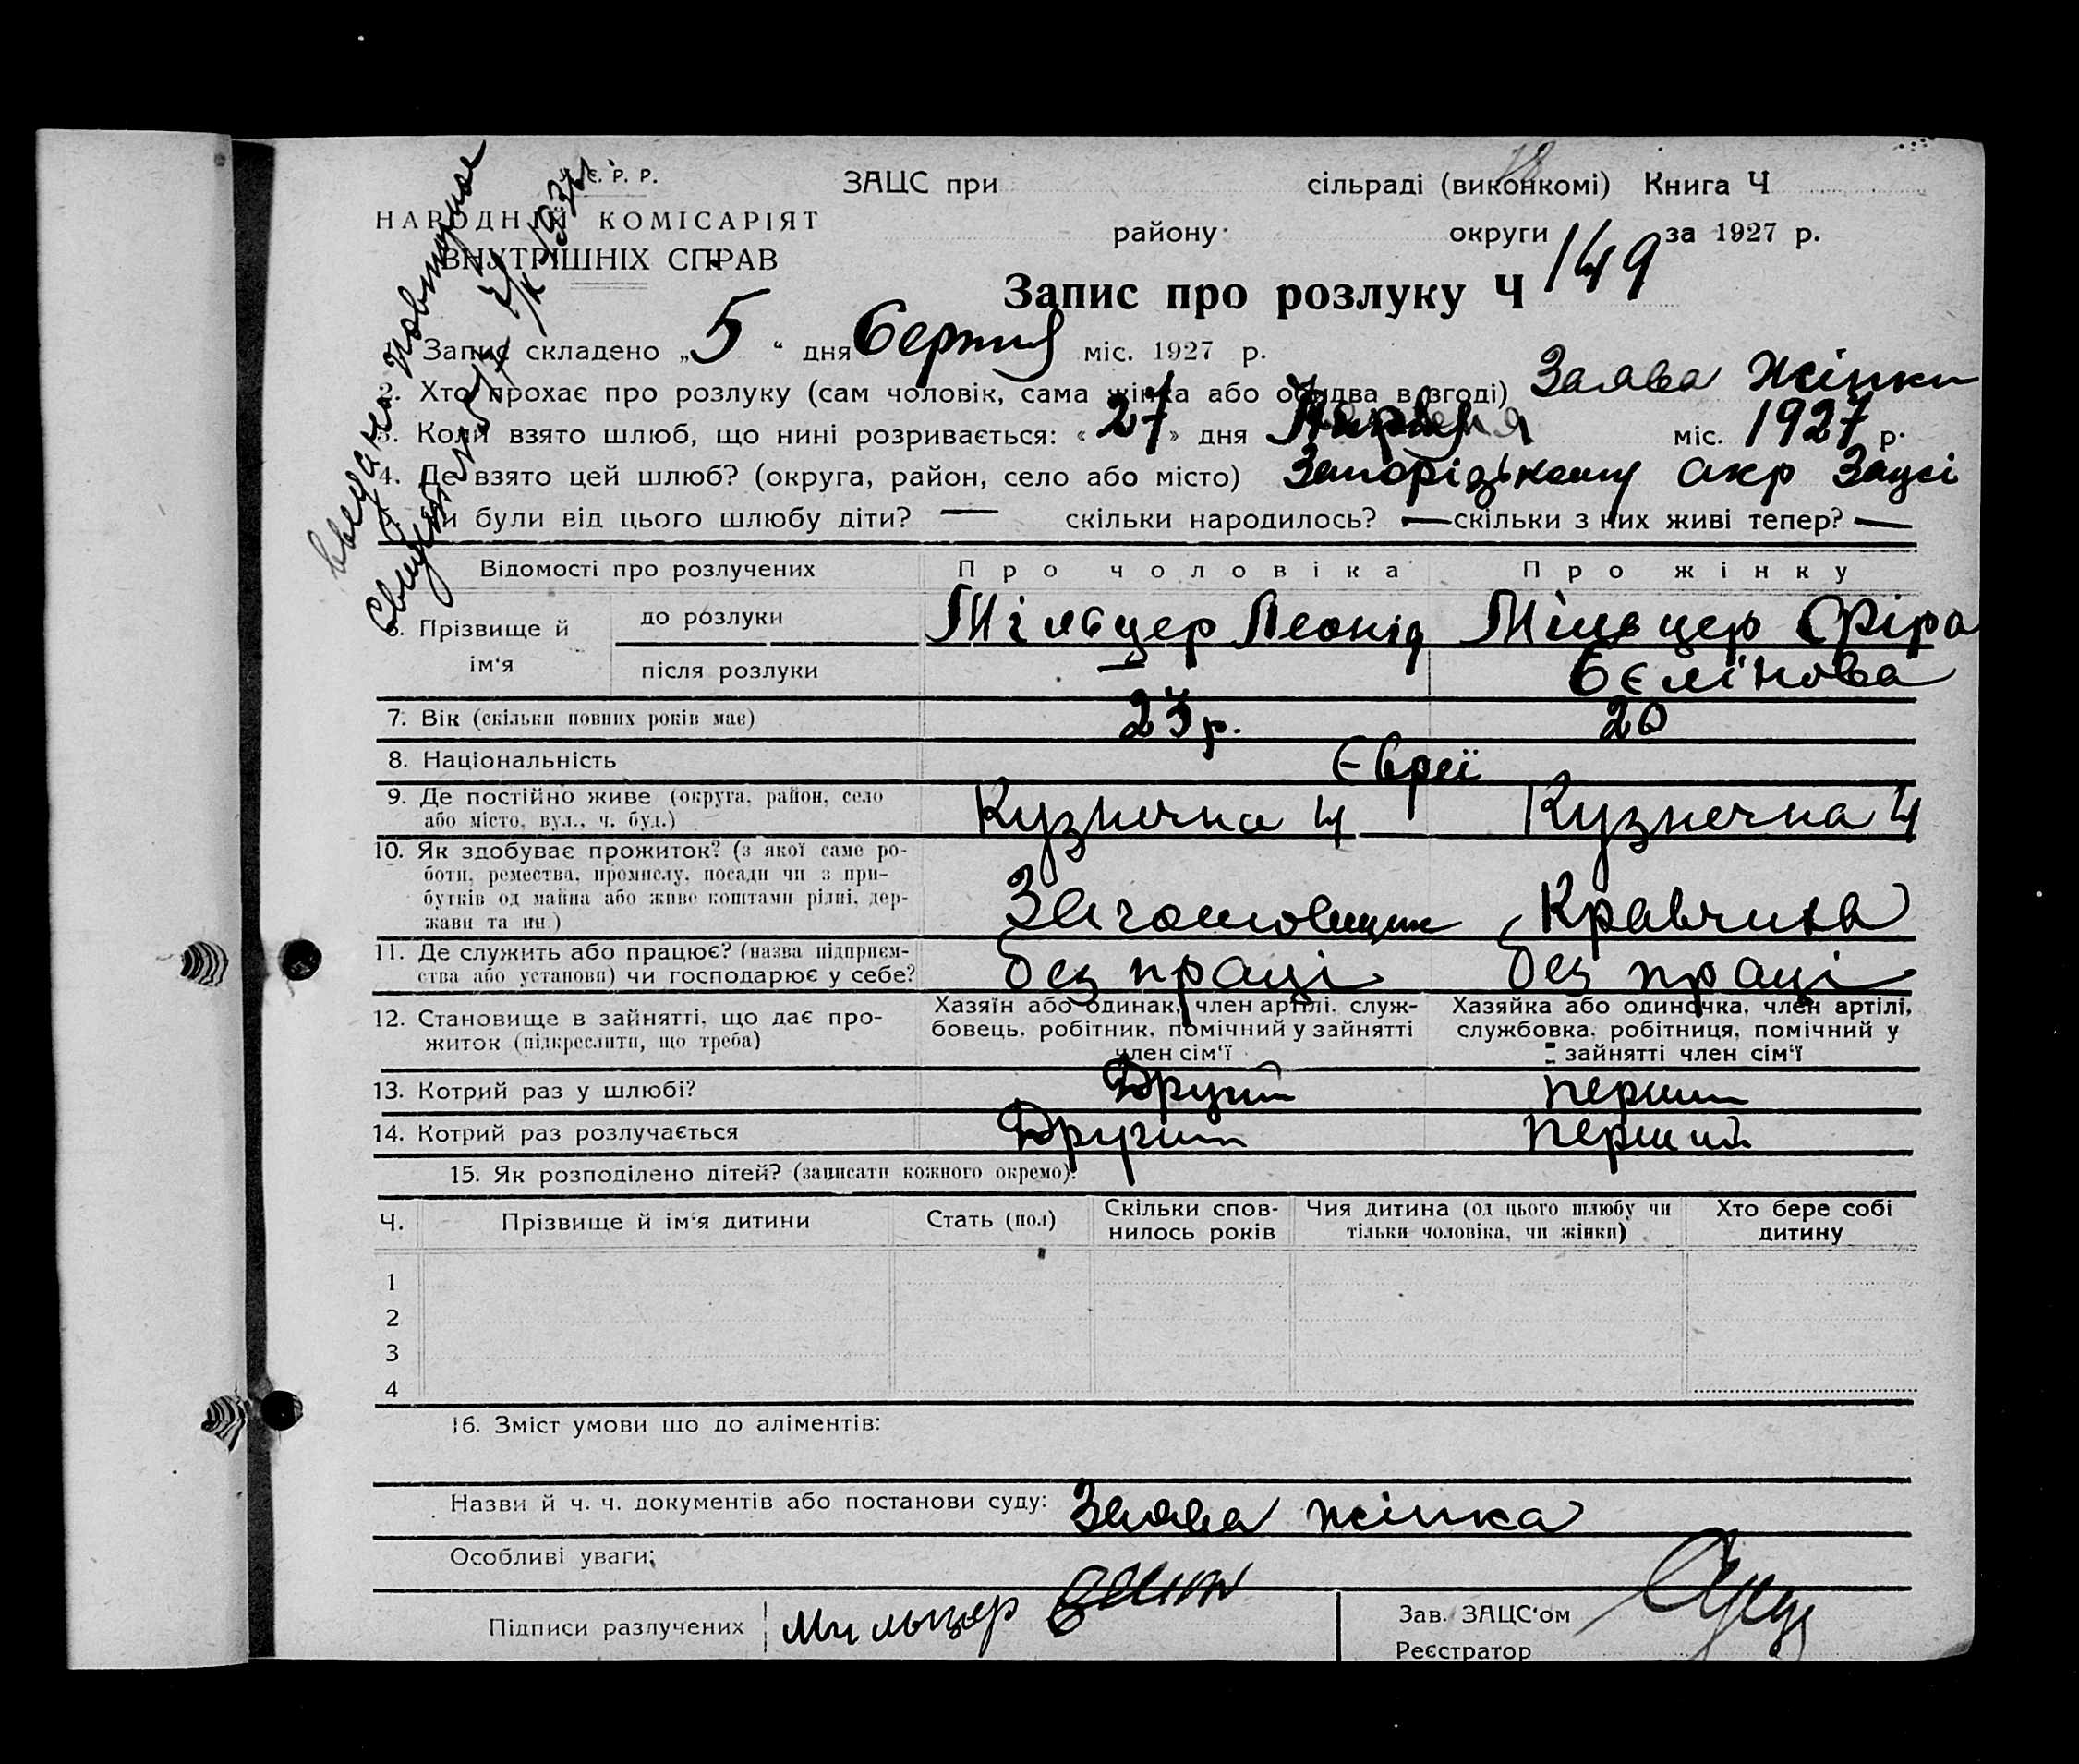 У. С. Р. Р.
НАРОДНИЙ КОМІСАРІЯТ
ВНУТРІШНІХ СПРАВ
ЗАЦС при сільраді (виконкомі) Книга Ч
району округи за 1927 р.
Запис про розлуку Ч 149
1. Запис складено „5“ дня Серпня міс. 1927 р.
2. Хто прохає про розлуку (сам чоловік, сама жінка або обидва в згоді) Заява Жінки
3. Коли взято шлюб, що нині розривається: «27» дня міс. 1927 р.
4. Де взято цей шлюб? (округа, район, село або місто) Запорізькому окр Зацсі
5. Чи були від цього шлюбу діти? — скільки народилось? — скільки з них живі тепер? —
Відомості про розлучених Про чоловіка Про жінку
6. Прізвище й ім'я до розлуки Мільцер Леонід Мільцер Єфіра
після розлуки — Бєлінова
7. Вік (скільки повних років має) 23 р. 20
8. Національність Євреї
9. Де постійно живе (округа, район, село
або місто, вул., ч. буд.) Кузнечна 4 Кузнечна 4
10. Як здобуває прожиток? (з якої саме ро-
боти, ремества, промислу, посади чи з при-
бутків од майна або живе коштами рідні, дер-
жави та ин.) Заготовщик Кравчиха
11. Де служить або працює? (назва підприєм-
ства або установи) чи господарює у себе? без праці без праці
12. Становище в зайнятті, що дає про-
житок (підкреслити, що треба)
Хазяїн або одинак, член артілі, служ-
бовець, робітник, помічний у зайнятті
член сім'ї
Хазяйка або одиночка, член артілі,
службовка, робітниця, помічний у
зайнятті член сім'ї
13. Котрий раз у шлюбі? Другий перший
14. Котрий раз розлучається Другий перший
15. Як розподілено дітей? (записати кожного окремо):
Ч. Прізвище й ім'я дитини Стать (пол) Скільки спов-
нилось років Чия дитина (од цього шлюбу чи
тільки чоловіка, чи жінки) Хто бере собі
дитину
1
2
3
4
16. Зміст умови що до аліментів:
Назви й ч. ч. документів або постанови суду: Заява жінка
Особливі уваги:
Підписи разлучених Мильцер
Зав. ЗАЦС'ом
Реєстратор